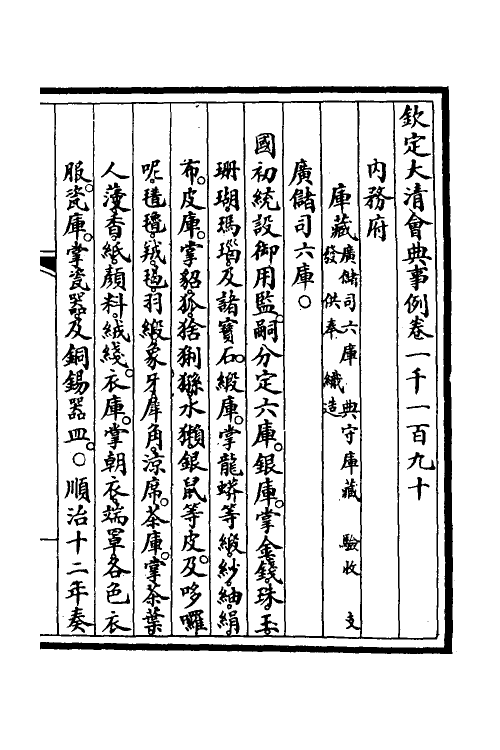 欽定大清會典事例卷一千一百九十
內務府
庫藏廣儲司六庫 典守庫藏 驗收 支發 供奉 織造
廣儲司六庫○
國初統設御用監。嗣分定六庫。銀庫。掌金錢珠玉
珊瑚瑪瑙及諸寶石。緞庫。掌龍蟒等緞。紗紬絹
布。皮庫。掌貂狐猞猁猻水獺銀鼠等皮。及哆囉
呢。氆氌。羢氊。羽緞。象牙犀角。涼席。茶庫。掌茶葉
人蓡香紙。顏料。絨綫。衣庫。掌朝衣。端罩。各色衣
服。瓷庫。掌瓷器。及銅錫器皿。○順治十二年奏